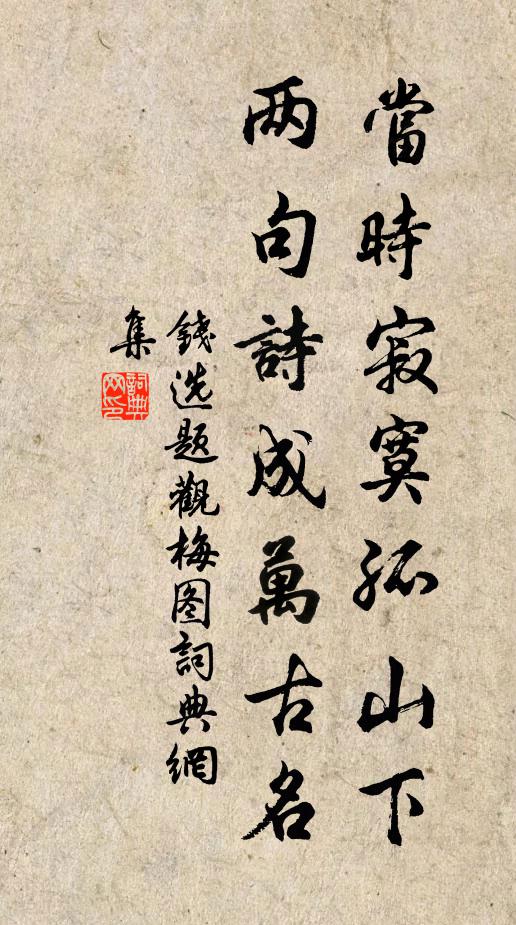 當時寂寞孤山下
两句詩成萬古名
錢选题觀梅图詞典網
集
詞典
网印